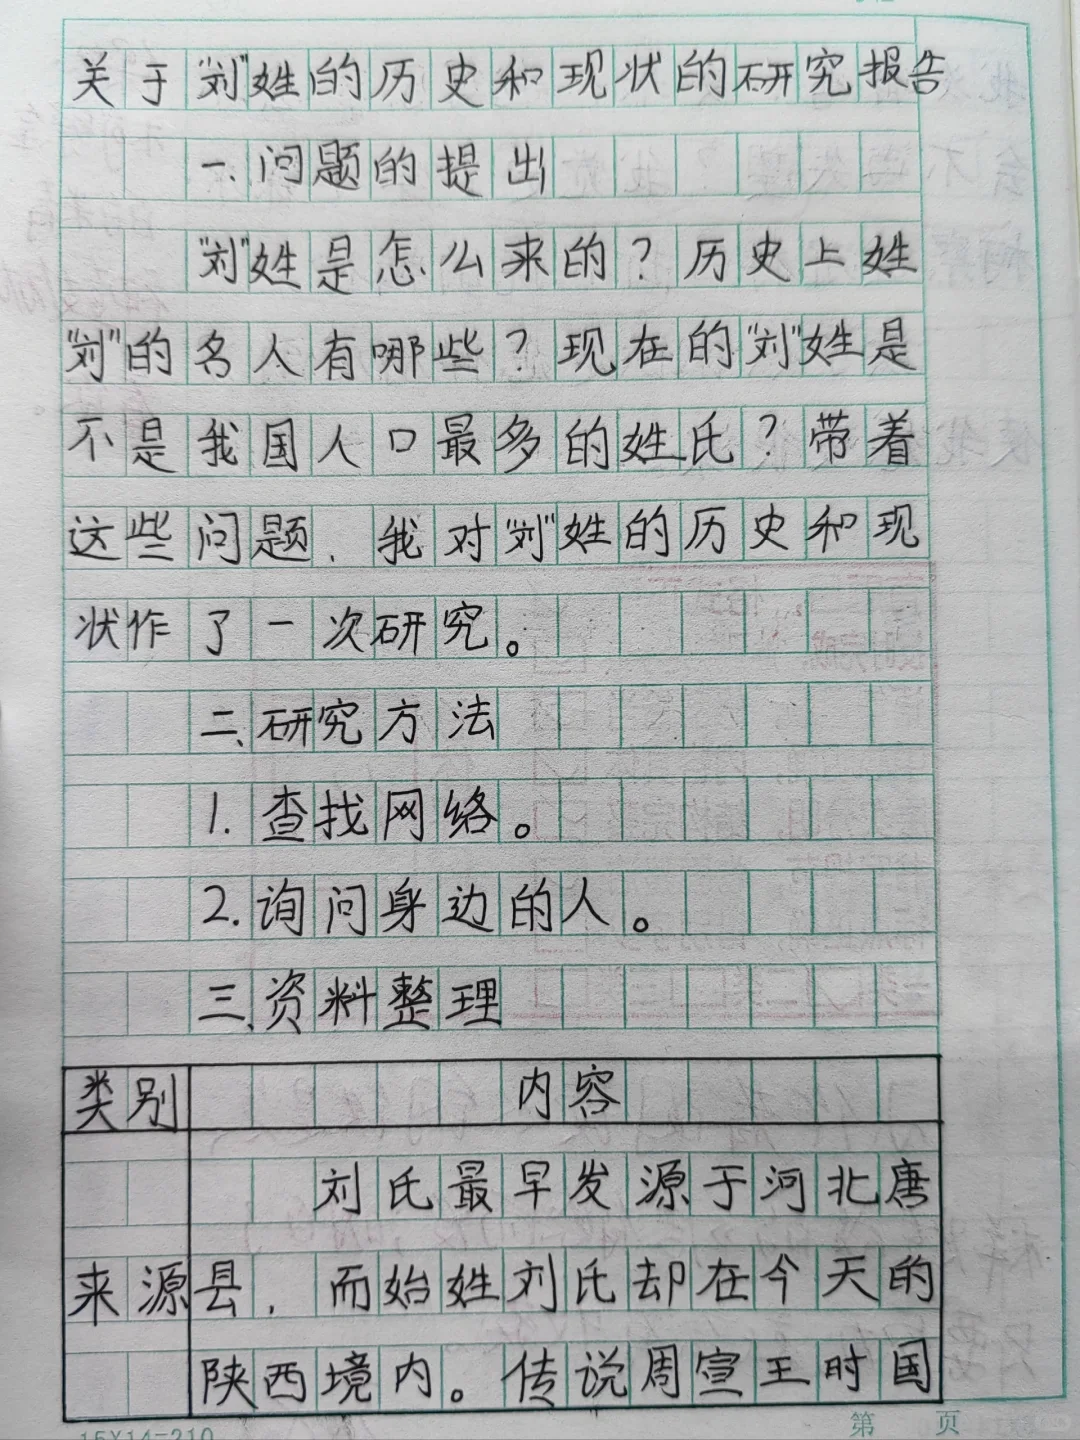 关于“刘”姓的历史和现状的研究报告
一、问题的提出
“刘”姓是怎么来的?历史上姓
“刘”的名人有哪些?现在的“刘”姓是
不是我国人口最多的姓氏?带着
这些问题,我对“刘”姓的历史和现
状作了一次研究。
二、研究方法
1.查找网络。
2.询问身边的人。
三、资料整理
类别 内容
刘氏最早发源于河北唐
来源 县,而始姓刘氏却在今天的
陕西境内。传说周宣王时国
15X14=210 第 页